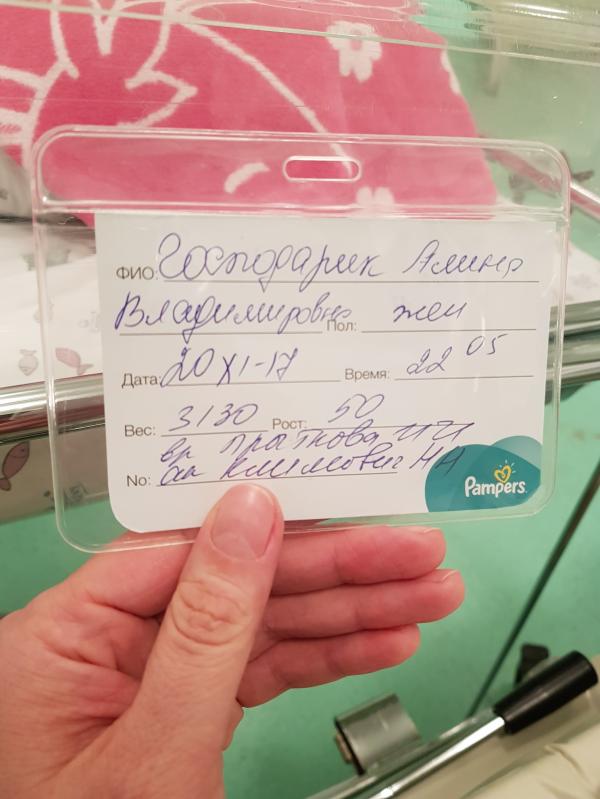 ФИО: Господарик Алина
Владимировна Пол: жен
Дата: 20 XI-17 Время: 22 05
Вес: 3130 Рост: 50
вр
No: ак Климович НН
Pampers